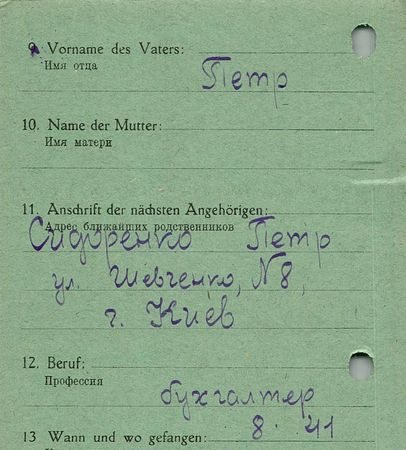 9. Vorname des Vaters:
Имя отца
Петр
10. Name der Mutter:
Имя матери
11. Anschrift der nächsten Angehörigen:
Адрес ближайших родственников
Сидоренко Петр
ул. Шевченко, N8,
г. Киев
12. Beruf:
Профессия
бухгалтер
8. 41
13 Wann und wo gefangen: